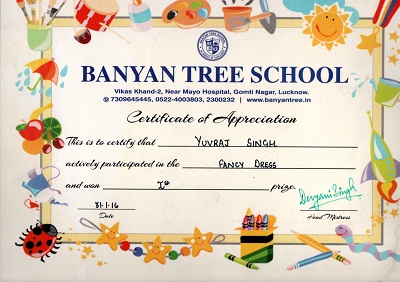 BANYAN TREE SCHOOL
Vikas Khand-2, Near Mayo Hospital, Gomti Nagar, Lucknow.
7309645445, 0522-4003803, 2300232 | www.banyantree.in
Certificate of Appreciation
This is to certify that YUVRAJ SINGH
actively participated in the FANCY DRESS
and won prize.
Devyani Singh
Date Head Mistress